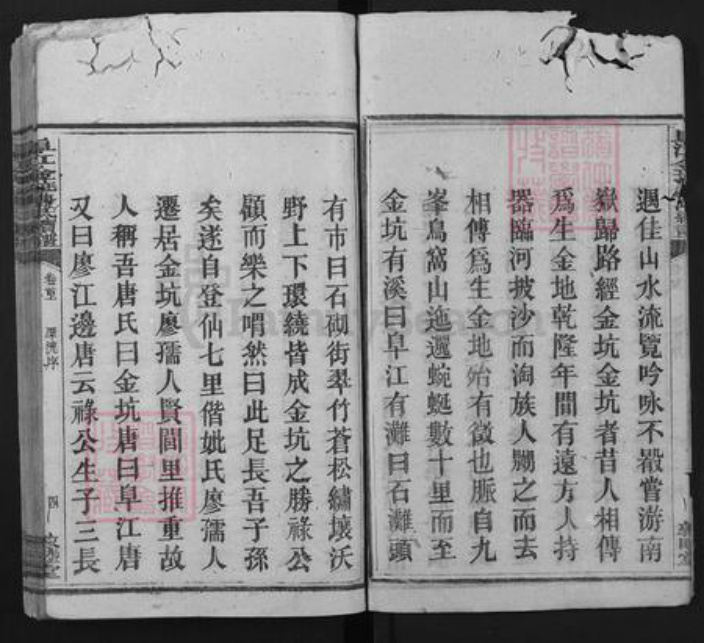 遇佳山水流覽吟咏不輟嘗游南
嶽歸路經金坑金坑者昔人相傳
爲生金地乾隆年間有遠方人持
器臨河披沙而淘族人嬲之而去
相傳爲生金地始有徵也脈自九
峯鳥窩山迤邐蜿蜒數十里而至
金坑有溪曰阜江有灘曰石灘頭
有市曰石砌街翠竹蒼松繡壤沃
野上下環繞皆成金坑之勝祿公
顧而樂之喟然曰此足長吾子孫
矣遂自登仙七里偕妣氏廖孺人
遷居金坑廖孺人賢閭里推重故
人稱吾唐氏曰金坑唐曰阜江唐
又曰廖江邊唐云祿公生子三長
卷首
源流序
四
FamilySearch